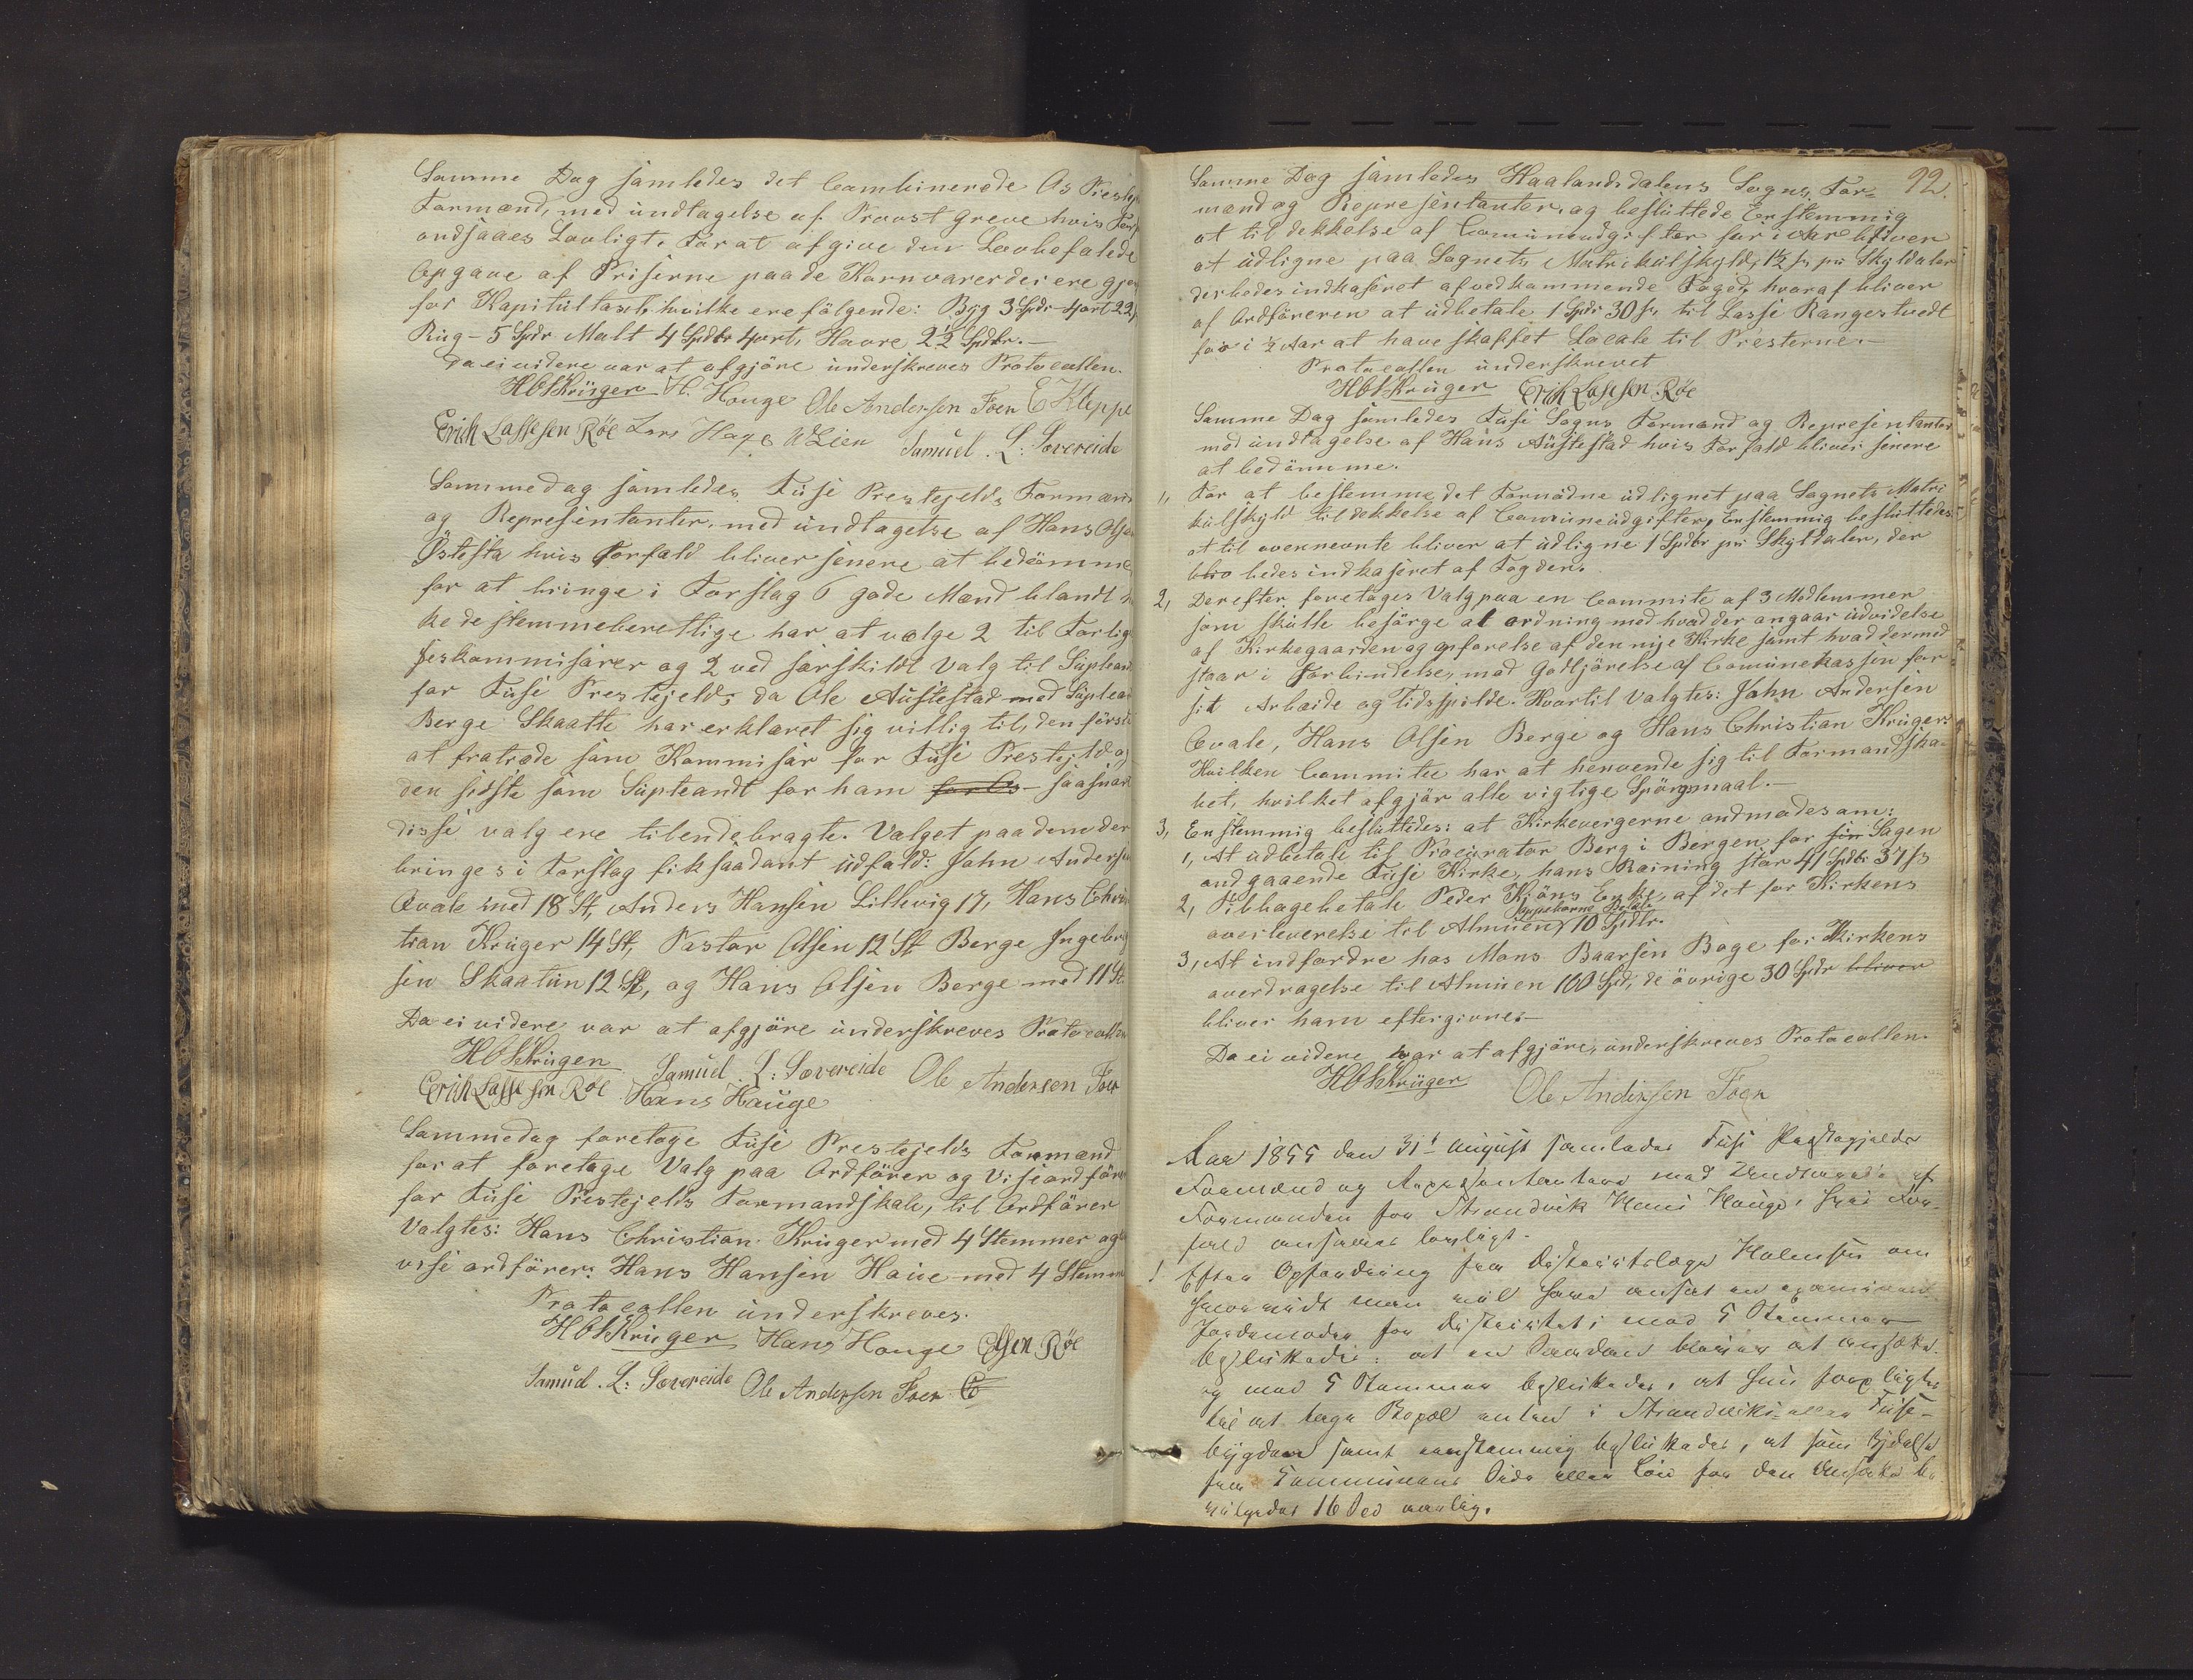 Samme Dag samledes det Combinerede Os Prestej
Formænd, med undtagelse af Provst Greve hvis Forf
andsaaes Lovligt. For at afgive den Lovbefalede
Opgave af Priserne paa de Kornvarer der ere gjen
for Kapitultaxt hvilke ere følgende: Byg 3 Spdr 4 ort 22
Rug - 5 Spdr Malt 4 Spdlr 4 ort, Havre 2½ Spdlr. -
Da ei videre var at afgjöre underskreves Protocollen.
HCKrüger H. Houge Ole Andersen Foer E Kleppe
Erich Lassesen Röe Lars Hage W Lien Samuel. L: Sovereide
Sammedag samledes Fuse Prestejelds Formænd
og Representanter, med undtagelse af Hans Olsen
Östesta hvis Forfald bliver senere at bedömme
for at bringe i Forslag 6 gode Mænd blandt
ke de stemmeberettige har at vælge 2 til Forlig
seskommisærer og 2 ved særskildt Valg til Supleand
for Fuse Prestejeld; da Ole Austestad med Suplea
Berge Skaatte har erklæret sig villig til, den förs
at fratræde som Kommisær for Fuse Prestejeld og
den sidste som Supleandt for ham for Os - saasnar
disse valg ere tilendebragte. Valget paa dem der
bringes i Forslag fik saadant udfald: John Anders
Qvale med 18 St, Anders Hansen Lillevig 17, Hans Chris
tian Krüger 14 St, Pastor Olsen 12 St Berge Ingebrig
sen Skaatun 12 St, og Hans Olsen Berge med 11 St.
Da ei videre var at afgjöre underskreves Protocollen
HCKrüger Samuel. L: Sovereide Ole Andersen Foer
Erich Lassesen Röe Hans Hauge
Sammedag foretoge Fuse Prestejelds Formænd
for at foretage Valg paa Ordförer og Viseordförer
for Fuse Prestejelds Formandskab, til Ordförer
Valgtes: Hans Christian Krüger med 4 Stemmer og
vise ordförer: Hans Hansen Haue med 4 Stemm
Protocollen underskreves.
HCKrüger Hans Houge Elsen Röe
Samuel. L: Sovereide Ole Andersen Foer
92.
Samme Dag samledes Haalandsdalens Sogns For=
mænd og Representanter, og besluttede Enstemmig
at til dekkelse af Comuneudgifter for i Aar bliver
at udligne paa Sognets Matrikulskyld, 12 s. pr Skyldaler
der bedes indkaseret af vedkommende Foged, hvoraf bliver
af Ordföreren at udbetale 1 Spdr 30 s. til Lasse Rangestvedt
for i ½ Aar at have skaffet Locale til Presterne. -
Protocollen underskrevet
HCKrüger Erich Lassesen Röe
Samme Dag samledes Fuse Sogns Formænd og Representanter
med undtagelse af Hans Austestad hvis Forfald bliver senere
at bedömme.
1, For at bestemme det Fornödne udlignet paa Sognets Matri
kulskyld til dekkelse af Comuneudgifter, Enstemmig besluttedes
at til ovennevnte bliver at udligne 1 Spdlr pr Skyldaler, der
blio bedes indkaseret af Fogden.
2, Derefter foretoges Valg paa en Commite af 3 Medlemmer
som skulle besörge al ordning med hvad der angaar udvidelse
af Kirkegaarden og opførelse af den nye Kirke samt hvad dermed
staar i Forbindelse, mod Godtjörelse af Comunekassen for
sit Arbeide og Tidsspilde. Hvortil Valgtes: John Andersen
Qvale, Hans Olsen Berge og Hans Christian Krüger.
Hvilken Commitee har at henvende sig til Formandska-
bet, hvilket afgjör alle vigtige Spörgsmaal. -
3, Enstemmig besluttedes: at Kirkevergerne andmodes om:
1, At udbetale til Procurator Berg i Bergen for sin Sagen
andgaaende Fuse Kirke, hans Ræining stor 41 Spdlr 37 s.
2, Tilbagebetale Peder Kjöns Enke, af det for Kirkens
overleverelse til Almuen 10 Spdlr.
3, At indfordre hos Mons Baarsen Boge for Kirkens
overdragelse til Almuen 100 Spd, de övrige 30 Spdr bliver
bliver ham eftergivne. -
Da ei videre var at afgjöre, underskreves Protocollen.
HCKrüger Ole Andersen Foer
Aar 1855 den 31t august samledes Fuse Præstegjelds
Formænd og Repræsentantere med Undtagelse af
Formanden for Strandvik Hans Hauge, hvis For-
fald ansaaes lovligt.
1 Efter Opfordring fra Districtslæge Holmsen om
hvorvidt man vil have ansat en examineret
Jordemoder for Districtet; med 5 Stemmer
besluttedes: at en Saadan bliver at ansætte.
og med 5 Stemmer besluttedes, at hun forpligtes
til at tage Bopæl enten i Strandvik eller Fuse-
bygden samt eenstemmig besluttedes, at som Hjælp
fra Communens Side eller Løn for den Ansatte be
vilgedes 16 Spd aarlig.